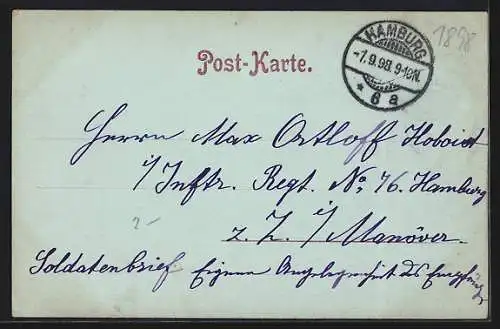 1898
HAMBURG
-7.9.98. 9-10N.
* 6 a
Post-Karte.
Herrn Max Ortloff Hoboist
i/ Inftr. Regt. No. 76. Hamburg
z. Z. i/ Manöver.
2-
Soldatenbrief Eigene Angelegenheit des Empfängers